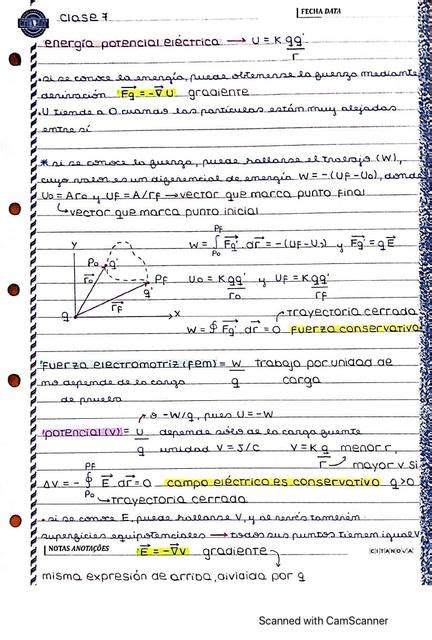 clase 7
FECHA DATA
energía potencial eléctrica → U = K qq'/r
• si se conoce la energía, puede obtenerse la fuerza mediante
derivación Fq = -∇U gradiente
• U tiende a 0 cuando las partículas están muy alejadas
entre sí
* si se conoce la fuerza, puede hallarse el trabajo (W),
cuyo valor es un diferencial de energía W = -(UF - U0), donde
U0 = A/r0 y UF = A/rF → vector que marca punto final
↳ vector que marca punto inicial
W = ∫ Fq' · dr = -(UF - U0) y Fq' = q E
PF
P0
y
P0
q'
PF
r0
q'
rF
q
x
U0 = K qq'/r0 y UF = K qq'/rF
→ trayectoria cerrada
W = ∮ Fq' · dr = 0 fuerza conservativa
fuerza electromotriz (fem) = W/q trabajo por unidad de
no depende de la carga
carga
de prueba
→ o -W/q, pues U = -W
potencial (V) = U/q depende sólo de la carga fuente
unidad V = J/C V = K q/r menor r,
mayor V si
q>0
ΔV = - ∮ E · dr = 0 campo eléctrico es conservativo
PF
P0
↳ trayectoria cerrada
• si se conoce E, puede hallarse V, y al revés también
superficies equipotenciales → todos sus puntos tienen igual V
NOTAS ANOTAÇÕES
E = -∇V gradiente
CITANOVA
misma expresión de arriba, dividida por q
Scanned with CamScanner